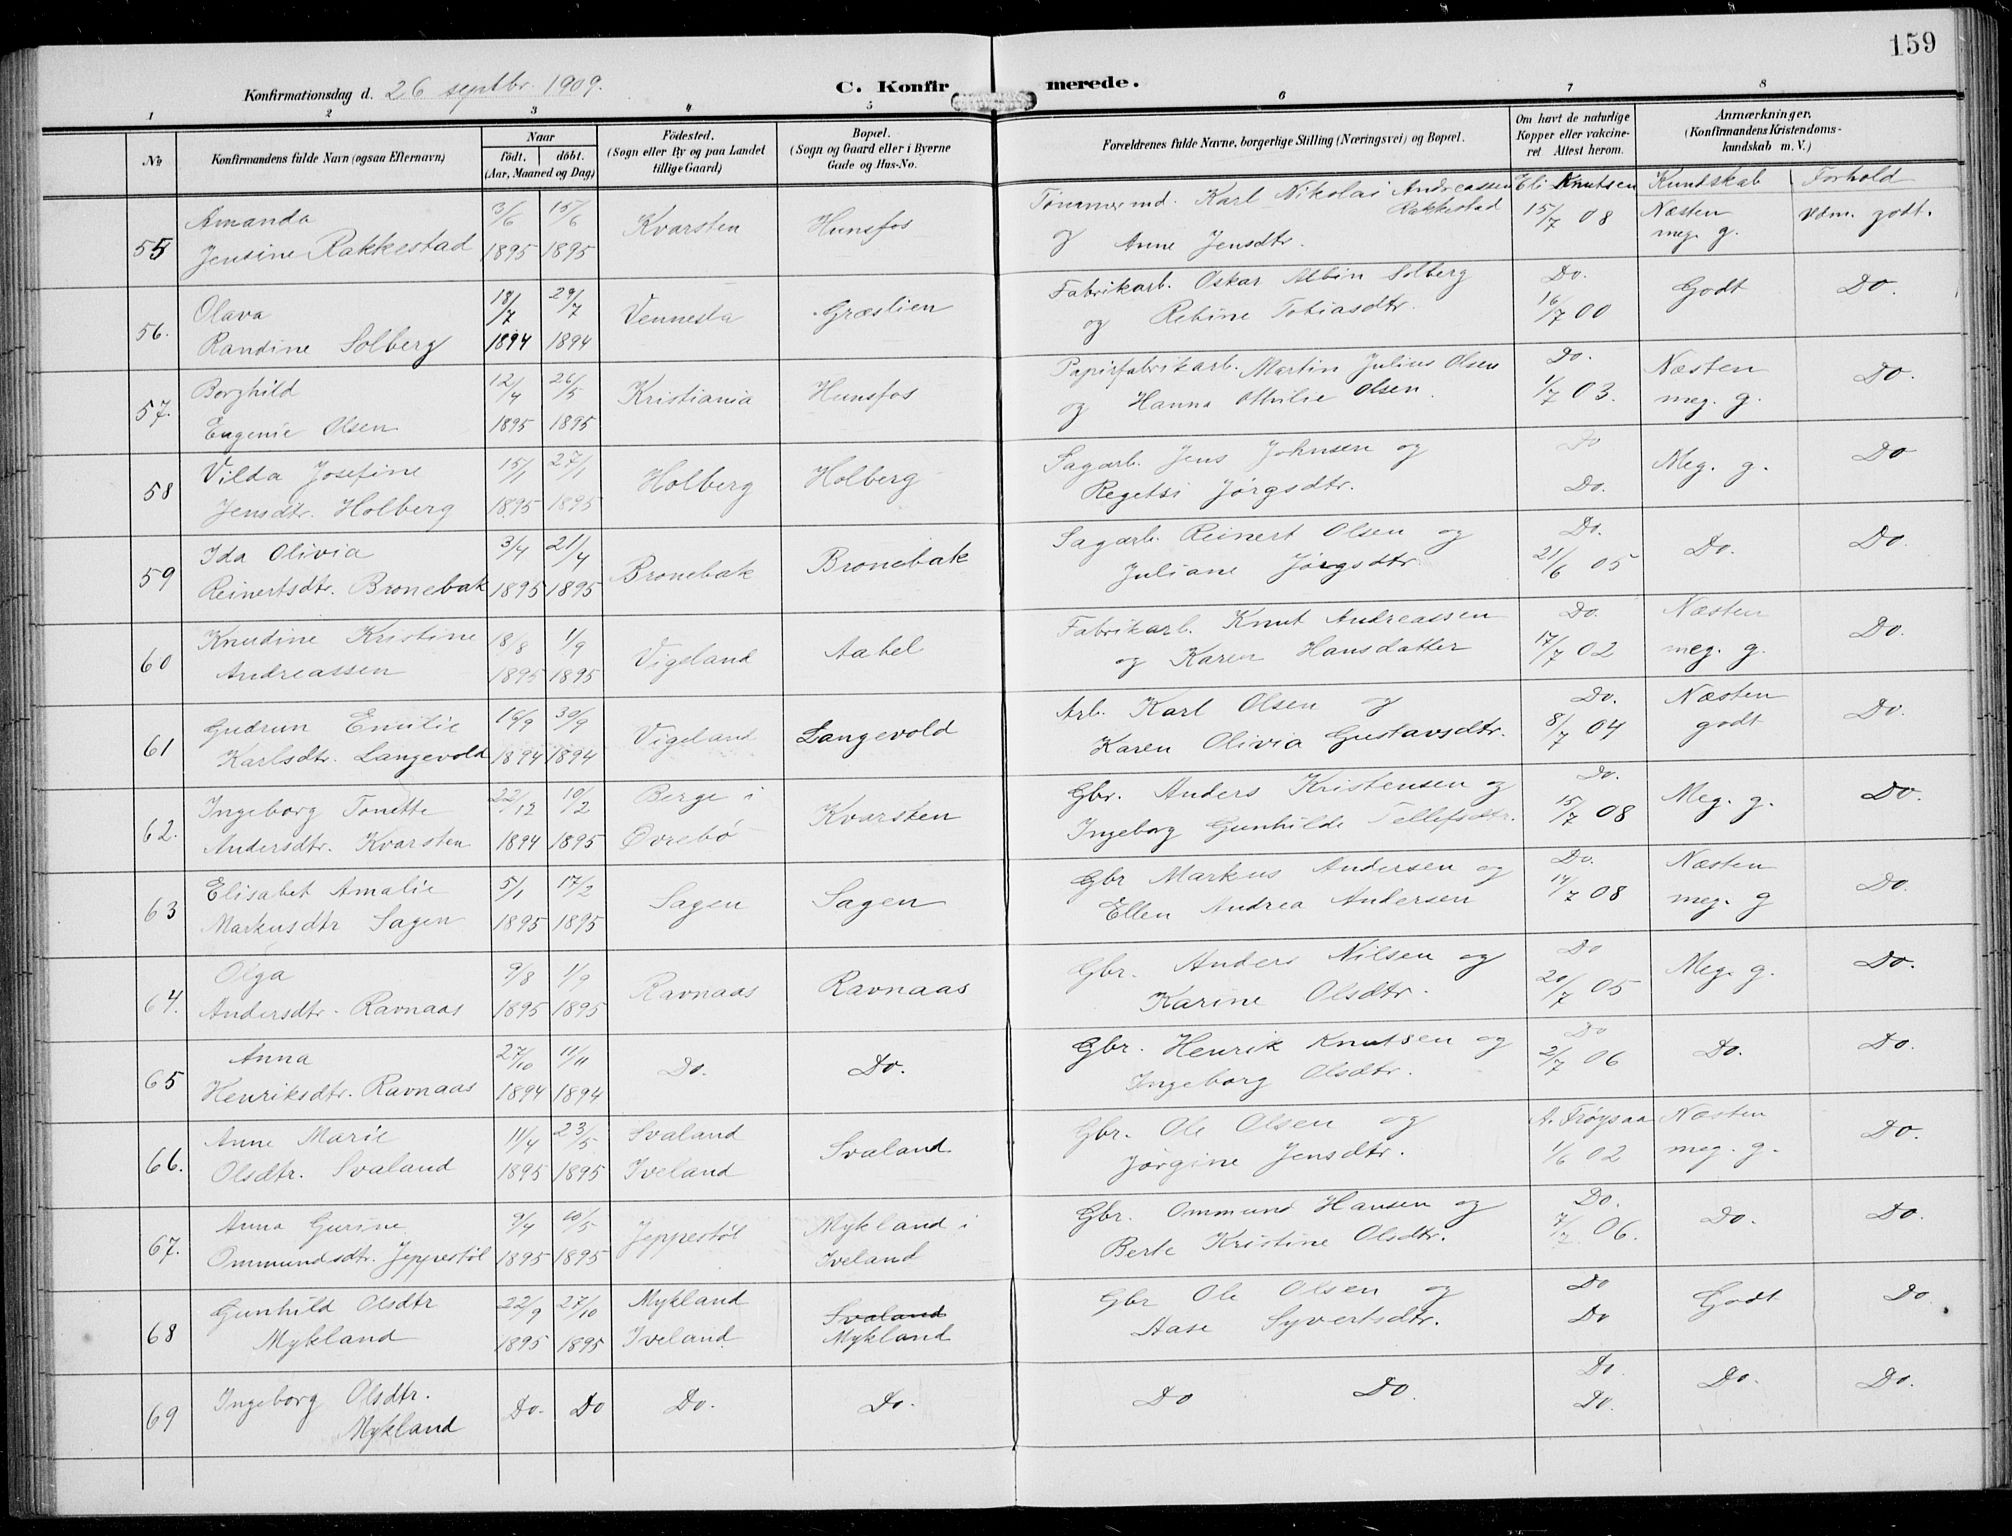 159
Konfirmationsdag d. 26 septbr. 1909.
C. Konfirmerede.
1 2 3 4 5 6 7 8
No
Konfirmandens fulde Navn (ogsaa Efternavn)
Naar
födt. döbt.
(Aar, Maaned og Dag)
Födested.
(Sogn eller By og paa Landet
tillige Gaard)
Bopæl.
(Sogn og Gaard eller i Byerne
Gade og Hus-No.
Forældrenes fulde Navne, borgerlige Stilling (Næringsvei) og Bopæl.
Om havt de naturlige
Kopper eller vakcine-
ret Attest herom.
Anmærkninger,
(Konfirmandens Kristendoms-
kundskab m. V.)
Kundskab Forhold
55 Amanda
Jensine Rakkestad
3/6 1895 15/6 1895
Kvarsten
Hunsfos
Tömmermd. Karl Nikolai Andreassen Rakkestad
og Anne Jensdtr.
Eli Knutsen
15/7 08
Næsten
meg. g.
Udm. godt.
56. Olava
Randine Solberg
18/7 1894 29/7 1894
Vennesla
Græslien
Fabrikarb. Oskar Albin Solberg
og Rebine Tobiasdtr.
Do.
16/7 00
Godt
Do.
57. Borghild
Eugenie Olsen
12/4 1895 26/5 1895
Kristiania
Hunsfos
Papirfabrikarb. Martin Julius Olsen
og Hanna Othilie Olsen.
Do.
1/7 03.
Næsten
meg. g.
Do.
58 Vilda Josefine
Jensdtr. Holberg
15/1 1895 27/1 1895
Holberg
Holberg
Sagarb. Jens Johnsen og
Regetsi Jørgsdtr.
Do
Do.
Meg. g.
Do
59 Ida Olivia
Reinertsdtr. Bronebak
3/4 1895 21/4 1895
Bronebak
Bronebak
Sagarb. Reinert Olsen og
Juliane Jørgsdtr.
Do.
21/6 05
Do.
Do.
60 Knudine Kristine
Andreassen
18/8 1895 1/9 1895
Vigeland
Aabel
Fabrikarb. Knut Andreassen
og Karen Hansdatter
Do.
17/7 02
Næsten
meg. g.
Do.
61 Gudrun Emilie
Karlsdtr. Langevold
16/9 1894 30/9 1894
Vigeland
Langevold
Arb. Karl Olsen og
Karen Olivia Gustavsdtr.
Do.
8/7 04
Næsten
godt
Do.
62. Ingeborg Tonette
Andersdtr. Kvarsten
22/12 1894 10/2 1895
Berge i
Øvrebö
Kvarsten
Gbr. Anders Kristensen og
Ingeborg Gunhilde Tellefsdtr.
Do.
15/7 08
Meg. g.
Do.
63 Elisabet Amalie
Markusdtr Sagen
5/1 1895 17/2 1895
Sagen
Sagen
Gbr Markus Andersen og
Ellen Andrea Andersen
Do.
14/7 08
Næsten
meg. g
Do.
64. Olga
Andersdtr. Ravnaas
9/8 1895 1/9 1895
Ravnaas
Ravnaas
Gbr. Anders Nilsen og
Karine Olsdtr.
Do
20/7 05
Meg. g.
Do.
65 Anna
Henriksdtr. Ravnaas
27/10 1894 11/11 1894
Do.
Do.
Gbr. Henrik Knutsen og
Ingeborg Olsdtr.
Do
2/7 06
Do.
Do.
66. Anne Marie
Olsdtr. Svaland
11/4 1895 23/5 1895
Svaland
Iveland
Svaland
Gbr. Ole Olsen og
Jørgine Jensdtr.
A. Frøysaa
1/6 02
Næsten
meg. g.
Do.
67. Anna Gurine
Ommundsdtr. Jeppestöl
9/4 1895 10/5 1895
Jeppestöl
Mykland i
Iveland
Gbr. Ommund Hansen og
Berte Kristine Olsdtr.
Do.
7/7 06.
Do.
Do.
68 Gunhild Olsdtr
Mykland
22/9 1895 27/10 1895
Mykland
Iveland
Svaland
Mykland
Gbr Ole Olsen og
Aase Syvertsdtr.
Do
Do
Godt
Do
69 Ingeborg Olsdtr.
Mykland
Do. Do
Do.
Do.
Do Do.
Do
Do.
Do.
Do.